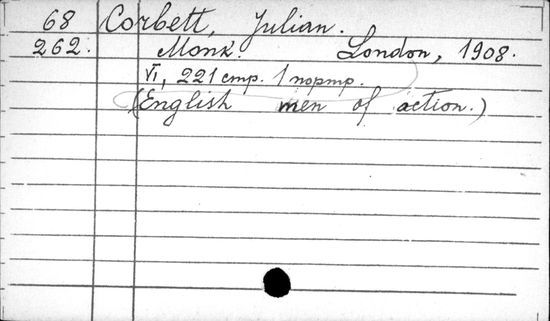 68 Corbett, Julian.
262. Monk. London, 1908.
VI, 221 стр. 1 портр.
(English men of action.)